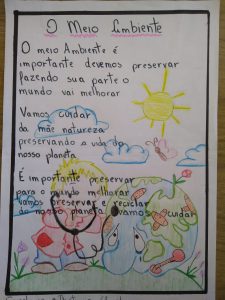 O Meio Ambiente
O meio Ambiente é
importante devemos preservar
fazendo sua parte o
mundo vai melhorar
Vamos cuidar
da mãe natureza
preservando a vida do
nosso planeta
É importante preservar
para o mundo melhorar
vamos preservar e reciclar
do nosso planeta vamos cuidar